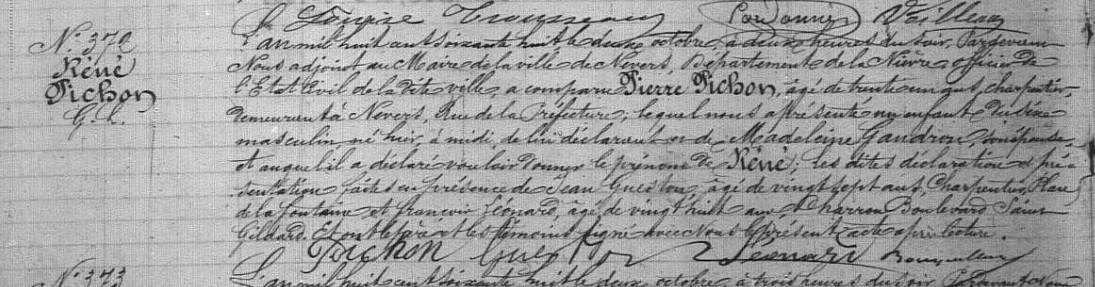 Louise Trousseau Cordonnier Vailleau
N° 372
René
Pichon
G. L.
L'an mil huit cent soixante huit le deux octobre, à deux heures du soir, Pardevant
Nous adjoint au Maire de la ville de Nevers, Département de la Nièvre, officier de
l'Etat Civil de la dite ville, a comparu Pierre Pichon, âgé de trente un ans, charpentier,
demeurant à Nevers, Rue de la Préfecture; lequel nous a présenté un enfant du sexe
masculin, né hier, à midi, de lui déclarant et de Madeleine Gaudron, son épouse
et auquel il a déclaré vouloir donner le prénom de Réné; les dites déclaration et pré-
sentation faites en présence de Jean Gueston, âgé de vingt sept ans, Charpentier, Place
de la fontaine et françois Léonard, âgé de vingt huit ans, Charron Boulevard Saint
Gildard. Et ont le père et les témoins signé avec Nous le présent acte après lecture.
Pichon Gueston Léonard
N° 373
L'an mil huit cent soixante huit le deux octobre à trois heures du soir Pardevant Nous